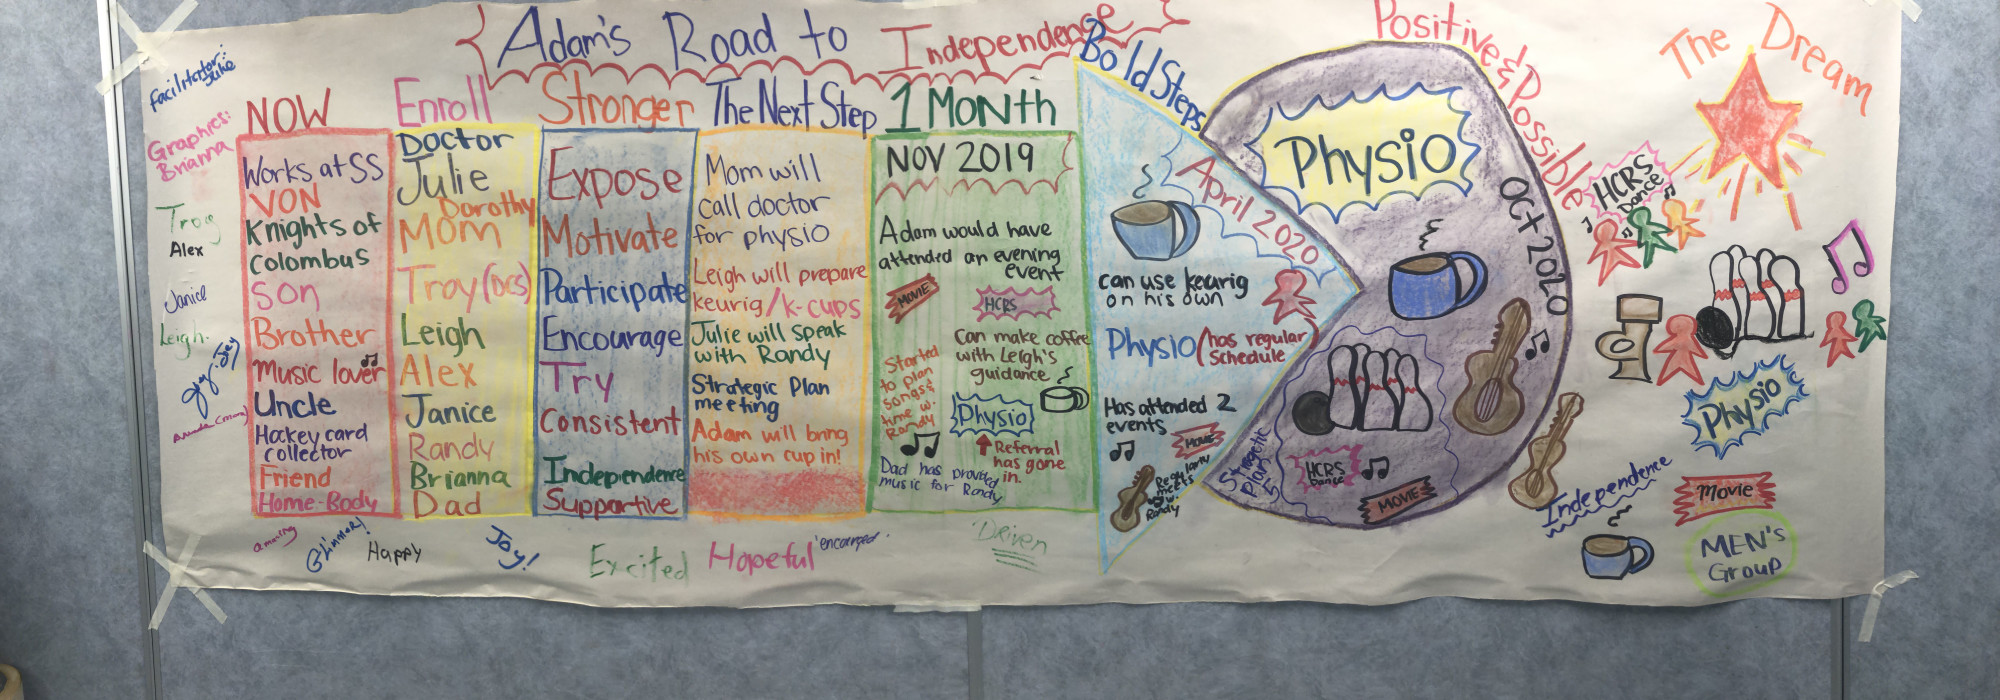 Adam's Road to Independence
Facilitator:
Julie
Graphics:
Brianna
Troy
Alex
Janice
Leigh
NOW
Works at SS
VON
Knights of
Colombus
Son
Brother
Music lover
Uncle
Hockey card
collector
Friend
Home-Body
Enroll
Doctor
Julie
Dorothy
Mom
Troy (DCS)
Leigh
Alex
Janice
Randy
Brianna
Dad
Stronger
Expose
Motivate
Participate
Encourage
Try
Consistent
Independence
Supportive
The Next Step
Mom will
call doctor
for physio
Leigh will prepare
keurig/k-cups
Julie will speak
with Randy
Strategic Plan
meeting
Adam will bring
his own cup in!
1 Month
NOV 2019
Adam would have
attended an evening
event
MOVIE
HCRS
Can make coffee
with Leigh's
guidance
Started
to plan
songs &
time w.
Randy
Physio
Referral
has gone
in.
Dad has provided
music for Randy
Bold Steps
April 2020
can use keurig
on his own
Physio (has regular
schedule
Has attended 2
events
MOVIE
Regularly
meets
w.
Randy
Positive & Possible
Physio
Oct 2020
HCRS
Dance
MOVIE
Strategic
Plan
5
The Dream
HCRS
Dance
Physio
Independence
Movie
MEN's
Group
amazing
Glimmer!
Happy
Joy!
Excited
Hopeful
"encouraged"
"Driven